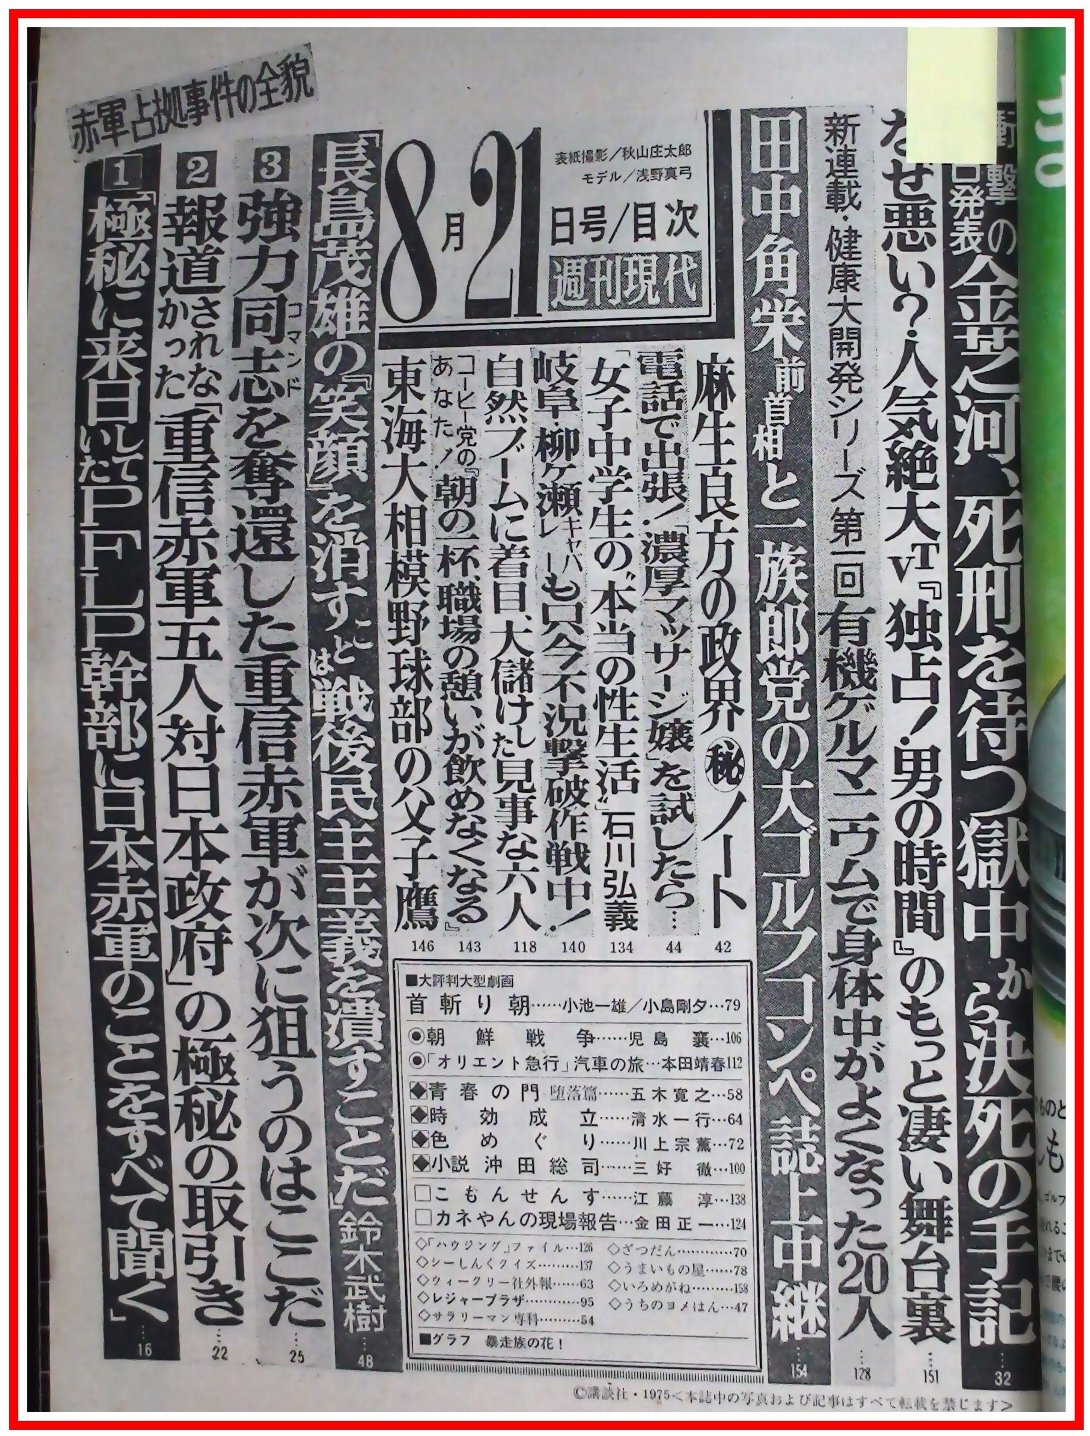 衝撃の
発表
金芝河、死刑を待つ獄中から決死の手記……32
なぜ悪い?・人気絶大TV『独占!・男の時間』のもっと凄い舞台裏……151
新連載・健康大開発シリーズ 第一回 有機ゲルマニウムで身体中がよくなった20人……128
田中角栄前首相と一族郎党の大ゴルフコンペ誌上中継……154
表紙撮影/秋山庄太郎
モデル/浅野真弓
8月21日号/目次
週刊現代
麻生良方の政界㊙ノート 42
電話で出張!「濃厚マッサージ嬢」を試したら… 44
「女子中学生の“本当の性生活” 石川弘義 134
岐阜・柳ヶ瀬キャバレーも只今不況撃破作戦中! 140
自然ブームに着目、大儲けした見事な六人 118
コーヒー党のあなた!『朝の一杯、職場の憩いが飲めなくなる』 143
東海大相模野球部の父子鷹 146
「長島茂雄の『笑顔』を消すことは戦後民主主義を潰すことだ」鈴木武樹……48
赤軍占拠事件の全貌
3 強力同志を奪還した重信赤軍が次に狙うのはここだ……25
コマンド
2 報道されなかった「重信赤軍五人対日本政府」の極秘の取引き……22
1 「極秘に来日していたPFLP幹部に日本赤軍のことをすべて聞く」……16
■大評判大型劇画
首斬り朝……小池一雄/小島剛夕…79
◉朝鮮戦争……児島襄…106
◉「オリエント急行」汽車の旅…本田靖春112
◆青春の門 堕落篇……五木寛之…58
◆時効成立……清水一行…64
◆色めぐり……川上宗薫…72
◆小説 沖田総司……三好徹…100
□こもんせんす……江藤淳…138
□カネやんの現場報告…金田正一…124
◇「ハウジング」ファイル…126
◇シーしんくクイズ………137
◇ウィークリー社外報……63
◇レジャープラザ…………95
◇サラリーマン専科………54
◇ざつだん…………70
◇うまいもの屋……78
◇いろめがね………158
◇うちのヨメはん…47
■グラフ 暴走族の花!
©講談社・1975<本誌中の写真および記事はすべて転載を禁じます>